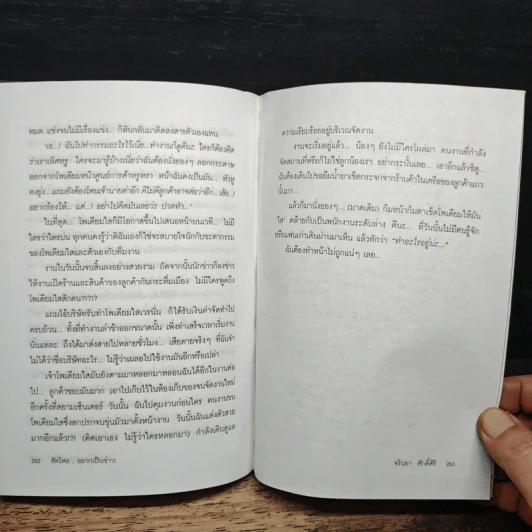 หมด แข่งจนไม่มีเรื่องแข่ง... ก็หันกลับมาคิดสงสารตัวเองแทน
เออ..! ฉันไปทำกรรมอะไรไว้เนี่ย... ทำงานก็ดูดีนะ ใครก็ต้องคิด
ว่าเราเลิศหรู ใครจะมารู้บ้างเนี่ยว่าฉันต้องนั่งยองๆ ลอกกระดาษ
ออกจากโพเดียมหน้าศูนย์การค้าหรูหรา หน้าฉันคงเป็นมัน
คงยุ่ง... แถมยังต้องโดนเจ้านายด่าอีก ดีไม่ดีลูกค้าอาจต่อว่าอีก...
อยากร้องไห้... แต่..! อย่าไปคิดมันเลยว่ะ ปวดหัว..."
ในที่สุด... โพเดียมใสก็มีโอกาสขึ้นไปเสนอหน้าบนเวที... ไม่มี
ใครว่าใครบ่น ทุกคนคงรู้ว่าดีฉันเองก็ใช่จะสบายใจนักกับชะตากรรม
ของโพเดียมใสและตัวเองกับทีมงาน
งานในวันนั้นจบสิ้นลงอย่างสวยงาม ถัดจากนั้นนักข่าวก็ลงข่าว
ให้งานเปิดร้านและสินค้าของลูกค้ากันกระหึ่มเมือง ไม่มีใครพูดถึง
โพเดียมใสสักคน?!?!?
แถมไอ้บริษัทรับทำโพเดียมใสเวรนั่น ก็ได้รับเงินค่าจัดทำไป
ครบถ้วน... ทั้งที่ทำงานล่าช้าออกขนาดนั้น เพิ่งทำเสร็จเวลาเริ่มงาน
นั่นแหละ ถึงได้มาส่งสายไปหลายชั่วโมง... เสียดายจริงๆ ที่ฉันจำ
ไม่ได้ว่าชื่อบริษัทอะไร... ไม่รู้ว่าเผลอไปใช้งานมันอีกหรือเปล่า
เจ้าโพเดียมใสมันยังตามมาหลอกมาหลอนฉันได้อีกในงานต่อ
ไป... ลูกค้าชอบมันมาก เอาไปเก็บไว้ในห้องเก็บของจนจัดงานใหม่
อีกครั้งที่สยามเซ็นเตอร์ วันนั้น ฉันไปคุมงานก่อนใคร คนงานขน
โพเดียมใสซึ่งสกปรกจนขุ่นมัวมาตั้งหน้างาน วันนั้นฉันแต่งตัวสวย
มากอีกแล้ว!?! (คิดเอาเอง ไม่รู้ว่าใครหลอกมา) กำลังเดินดูแล
262 ฮัลโหล... อยากเป็นข่าว!
ความเรียบร้อยอยู่บริเวณจัดงาน
งานจะเริ่มอยู่แล้ว... น้องๆ ยังไม่มีใครโผล่มา คนงานที่กำลัง
จัดสถานที่หรือก็ไม่ใช่ลูกน้องเรา อย่ากระนั้นเลย... เอาอีกแล้วซิตู...
ฉันต้องเดินไปขอยืมน้ำยาเช็ดกระจกจากร้านค้าในเครือของลูกค้าแถว
นั้นมา...
แล้วก็มานั่งยองๆ... (มาดเดิม) ก้มหน้าก้มตาเช็ดโพเดียมให้มัน
ใส คล้ายกับเป็นพนักงานระดับล่าง ดีนะ... ที่วันนั้นไม่มีคนรู้จัก
หรือแฟนเก่าเดินผ่านมาเห็น แล้วทักว่า "ทำอะไรอยู่น่ะ..."
ฉันต้องทำหน้าไม่ถูกแน่ๆ เลย...
จรินยา ศักดิ์ศิริ 263